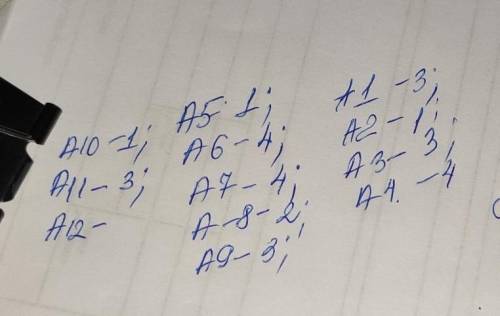 A10 - 1;
A11 - 3;
A12 -
A5 1;
A6 - 4;
A7 - 4;
A - 8 - 2;
A9 - 3;
A1 - 3;
A2 - 1;
A3 - 3;
A4. - 4